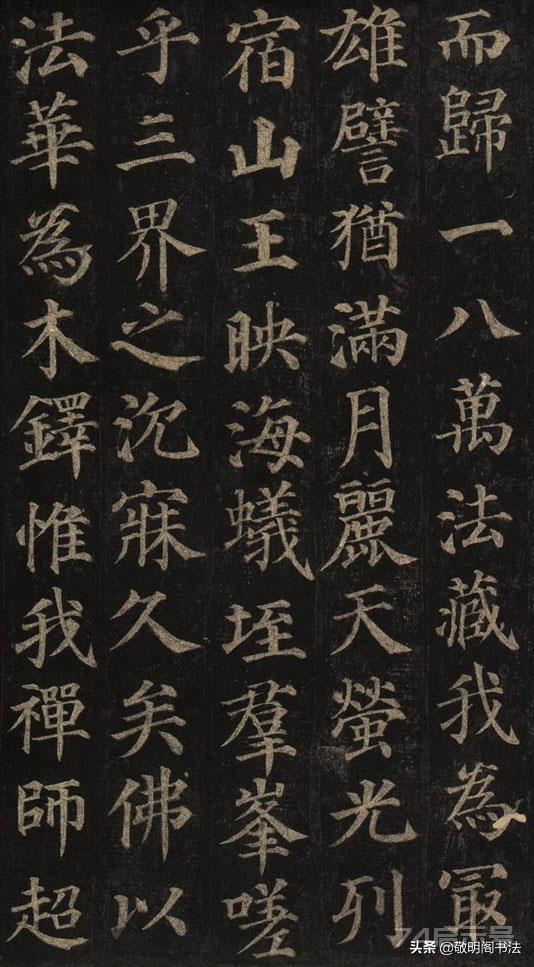 而歸一八萬法藏我為冣
雄譬猶滿月麗天螢光列
宿山王映海蟻垤羣峯嗟
乎三界之沉寐久矣佛以
法華為木鐸惟我禪師超
头条 @敬明阁书法